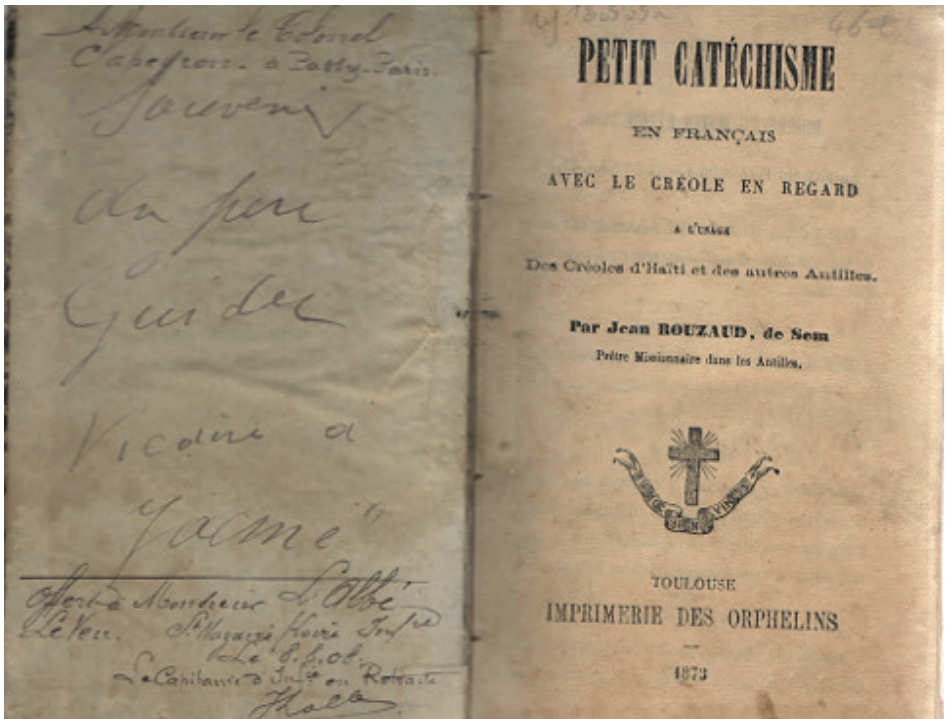 A Monsieur le Colonel
Capeyron - à Passy-Paris.
Souvenir
du père
Guider
Vicaire à
Jacmel
offert à Monsieur L'Abbé
Le Ven. St Nazaire
Le 8.8.08.
Le Capitaine d'Inf. en Retraite
46 €
PETIT CATÉCHISME
EN FRANÇAIS
AVEC LE CRÉOLE EN REGARD
A L'USAGE
Des Créoles d'Haïti et des autres Antilles.
Par Jean ROUZAUD, de Sem
Prêtre Missionnaire dans les Antilles.
TOULOUSE
IMPRIMERIE DES ORPHELINS
1873